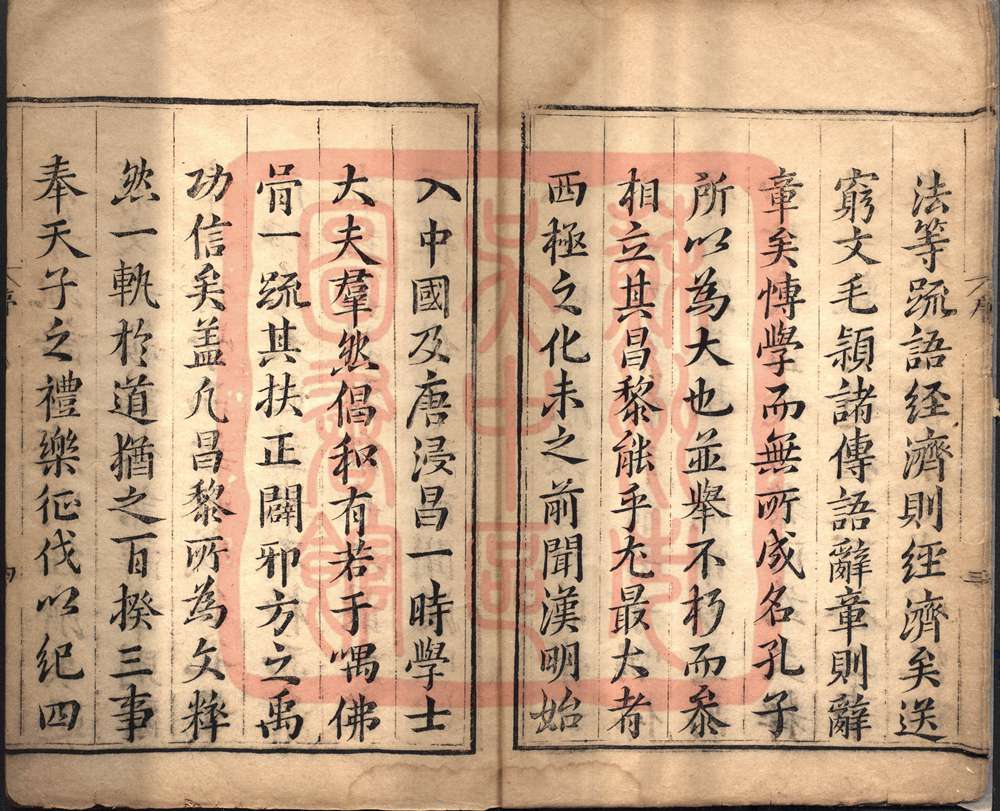 法等䟽語経濟則経濟矣送
窮文毛頴諸傳語辭章則辭
章矣愽學而無所成名孔子
所以為大也並舉不朽而叅
相立其昌黎能乎尤最大者
西極之化未之前聞漢明始
入中國及唐浸昌一時學士
大夫羣然倡和有若于喁佛
骨一䟽其扶正闢邪方之禹
功信矣盖凢昌黎所為文粹
然一軌扵道猶之百揆三事
奉天子之禮樂征伐以紀四